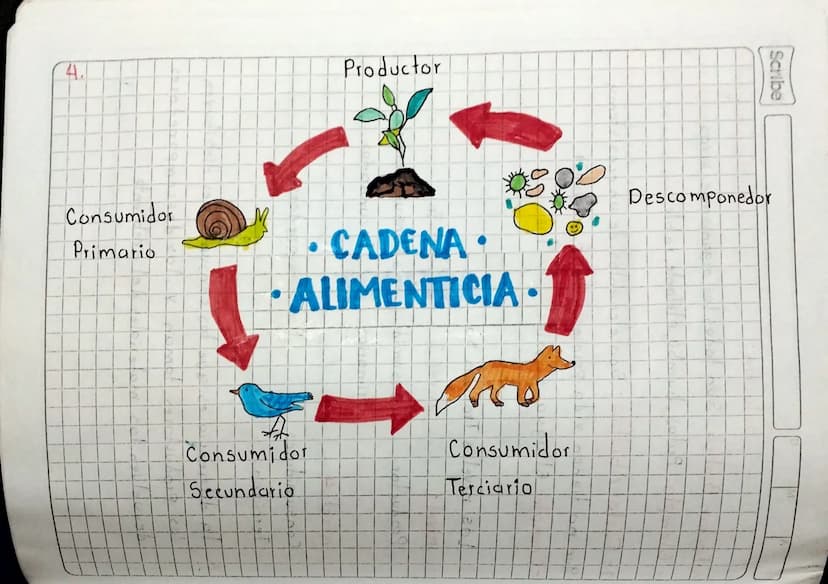 4.
Productor
Scribe
Descomponedor
Consumidor
Primario
· CADENA ·
· ALIMENTICIA ·
Consumidor
Secundario
Consumidor
Terciario